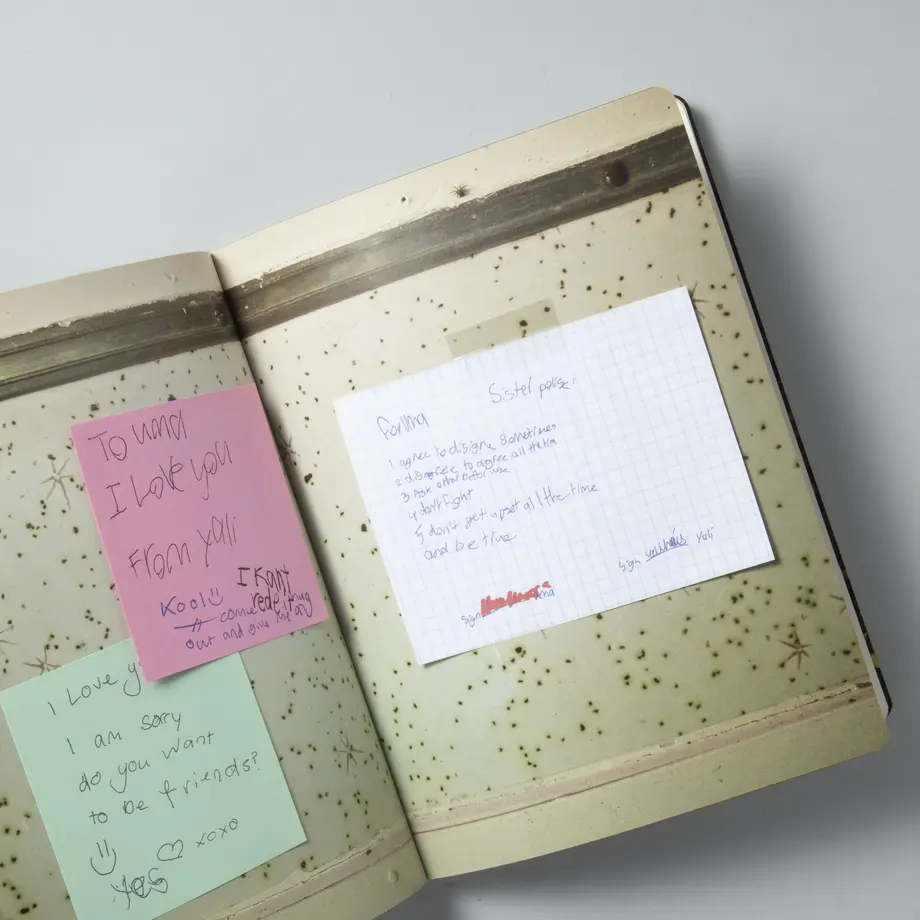 To uma
I Love you
From yali
Kool
I Kant
rede it
come
out and give me a
hug
I Love y
I am sorry
do you want
to be friends?
xoxo
yes
Sister
For Uma
1 agree to disigre Sometimes
2 disagree to agree all the time
3 Ask other before use
4 don't fight
5 don't get upset all the time
and be true
Sign
ma
Sign
Yali